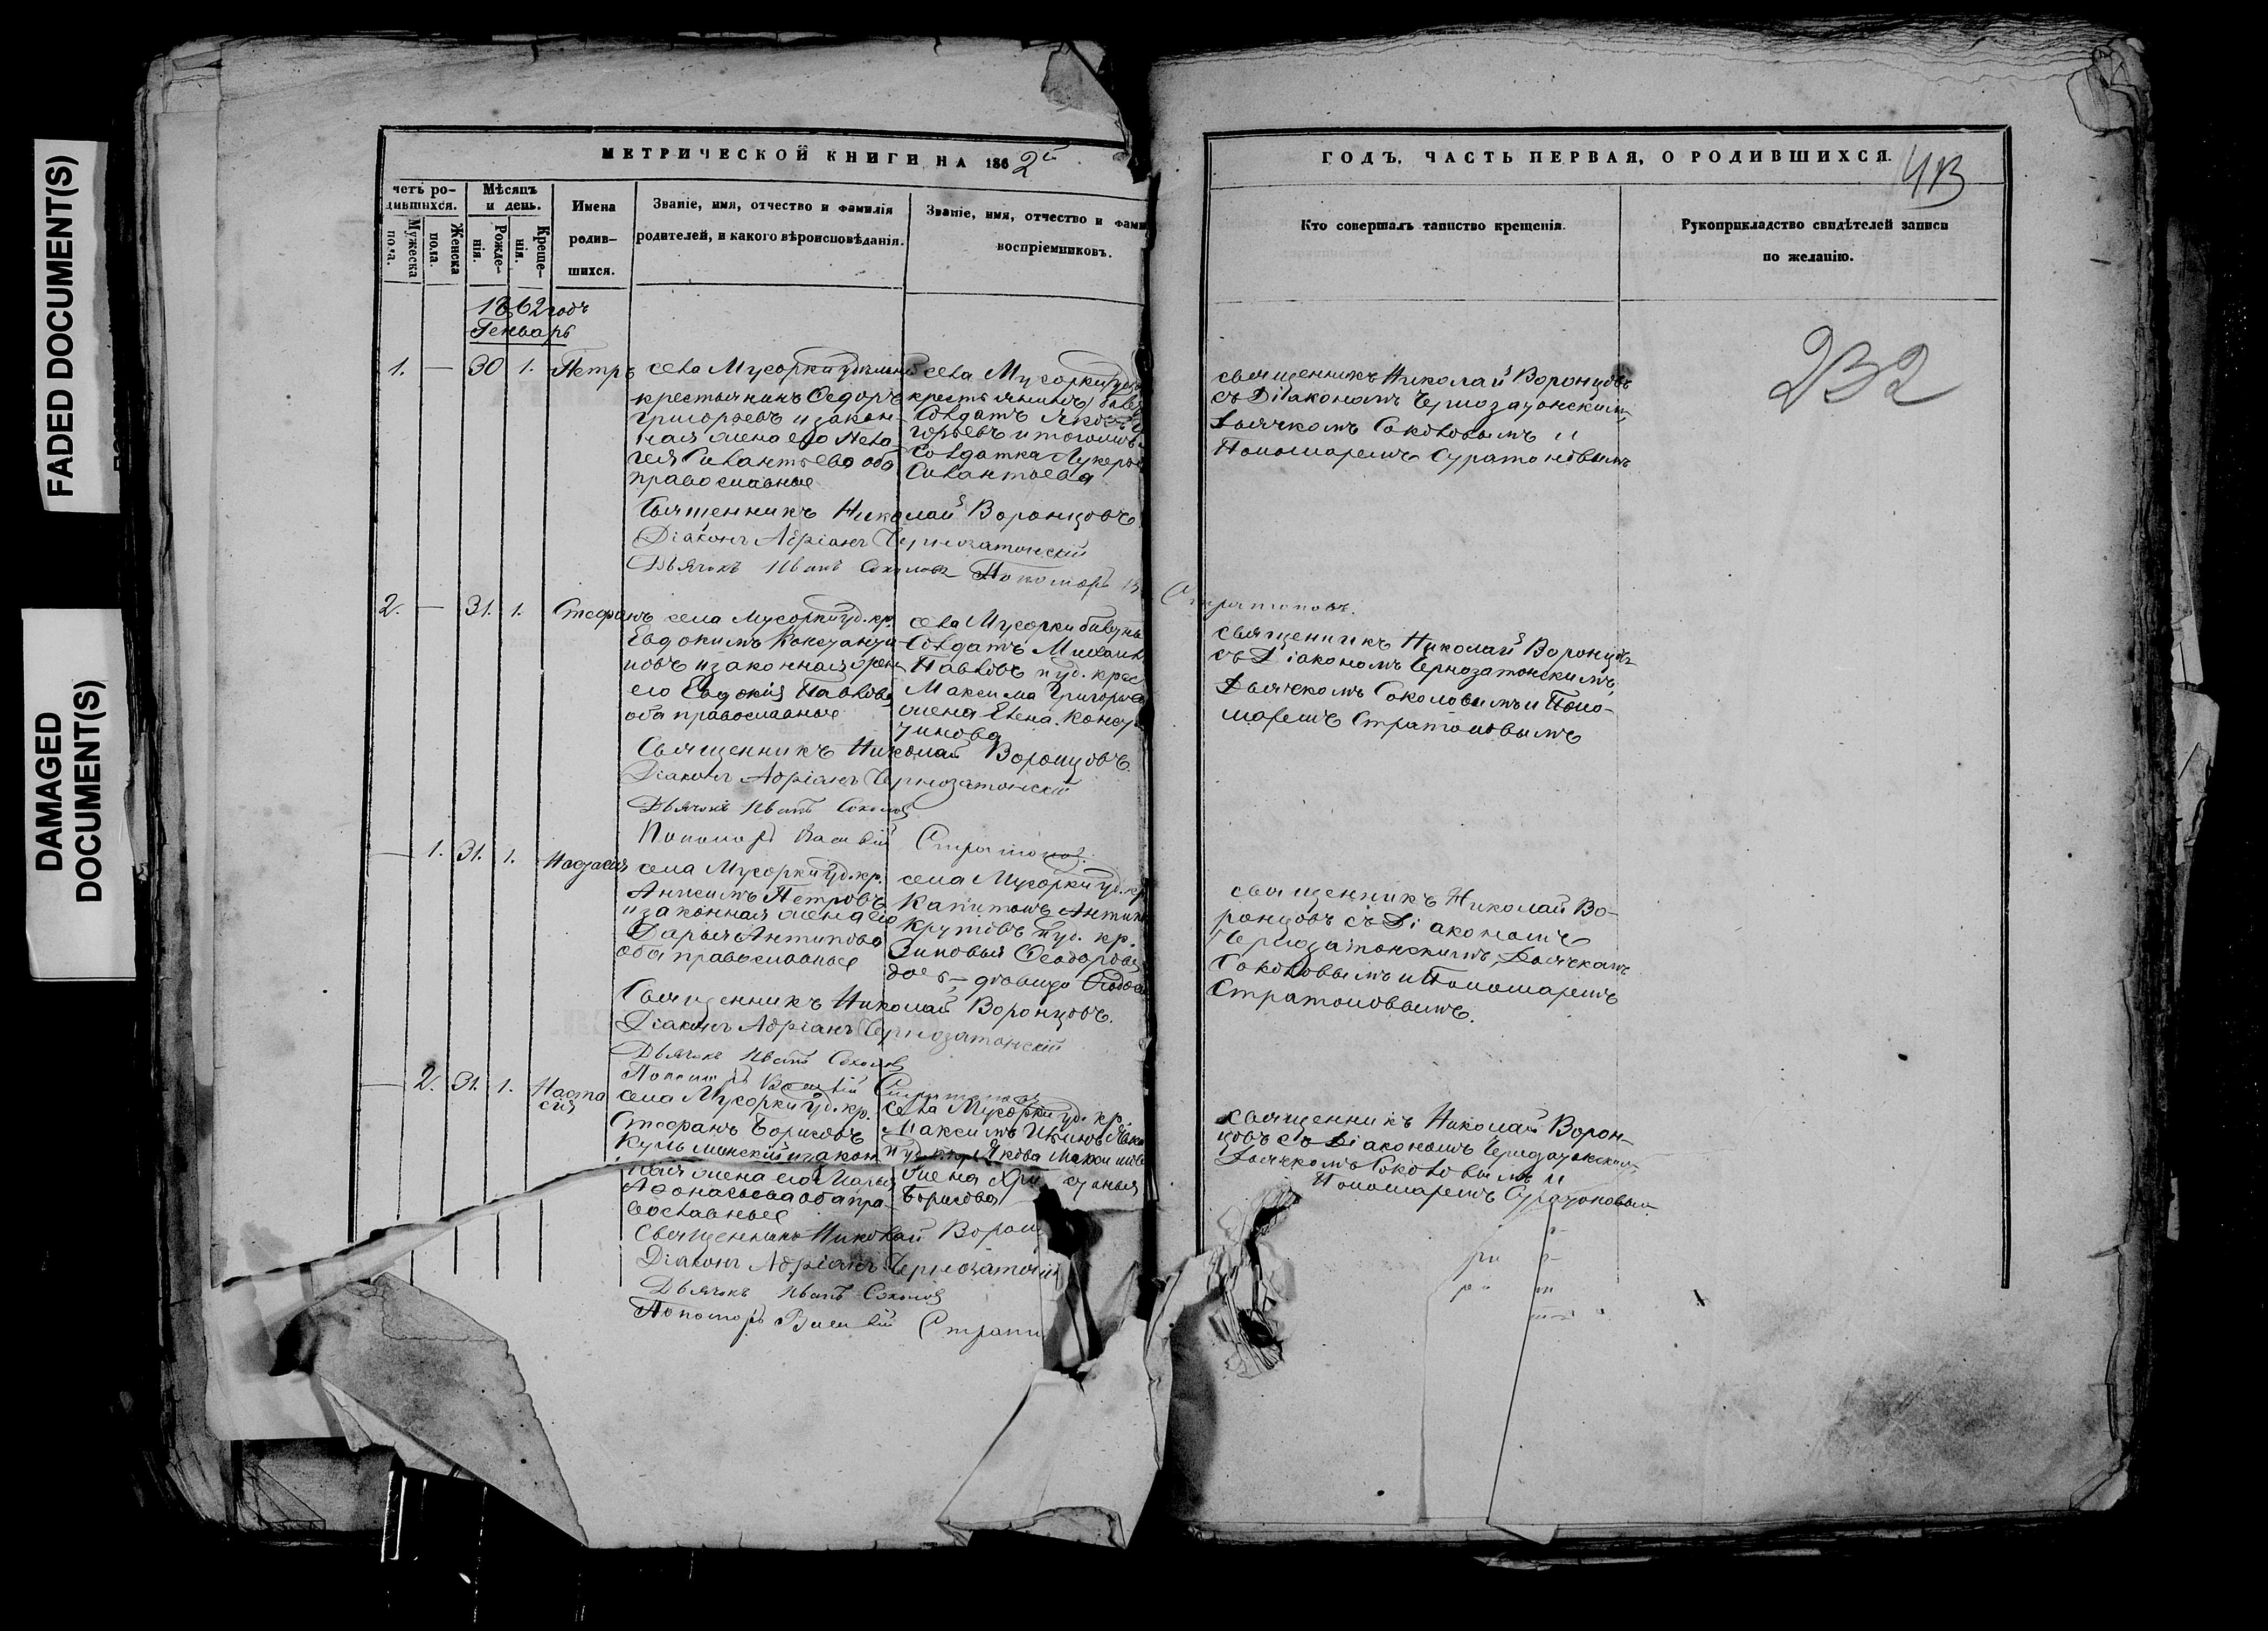 FADED DOCUMENT(S)
DAMAGED
DOCUMENT(S)
МЕТРИЧЕСКОЙ КНИГИ НА 1862й
четъ ро-
дившихся.
Мужеска
пола.
Женска
пола.
Мѣсяцъ
и день.
Рожде-
нія.
Креще-
нія.
Имена
родив-
шихся.
Званіе, имя, отчество и фамилія
родителей, и какого вѣроисповѣданія.
Званіе, имя, отчество и фами
воспріемниковъ.
1862 годъ
Генварь
1. — 30 1. Петръ
села Мусорки удѣльный
крестьянинъ Ѳедоръ
Григорьевъ и закон-
ная жена его Пела-
гея Силантьева оба
православные
села Мусорки
крестьянинъ
Солдатъ Яковъ
горьевъ и
Солдатка Лукерья
Силантьева
Священникъ Николай Воронцовъ
Діаконъ Адріанъ Чернозатонскій
Дьячокъ Иванъ Соколовъ Пономарь
2. — 31. 1. Стефанъ
села Мусорки уд. кр.
Евдокимъ Константи-
новъ и законная жена
его Евдокія Павлова
оба православные
села Мусорки
Солдатъ Михаилъ
Павловъ и уд. крес
Максима Григорьева
жена Елена Конст
тинова
Священникъ Николай Воронцовъ.
Діаконъ Адріанъ Чернозатонскій
Дьячокъ Иванъ Соколовъ
Пономарь Василій Стратоновъ.
— 1. 31. 1. Настасія
села Мусорки уд. кр.
Анисимъ Петровъ
и законная жена его
Дарья Антипова
оба православные
села Мусорки уд. кр
Капитонъ Антип
Крутовъ и уд. кр.
Зиновья Ѳеодорова
дочь, дѣвица
Священникъ Николай Воронцовъ.
Діаконъ Адріанъ Чернозатонскій
Дьячокъ Иванъ Соколовъ
Пономарь Василій Стратоновъ
— 2. 31. 1. Наста
сія
села Мусорки уд. кр.
Стефанъ Борисовъ
Кузьминскій и закон
ная жена его Марья
Аѳонасьева оба пра-
вославные
села Мусорки уд. кр.
Максимъ
и уд. кр. Якова Макси
жена Хри стинья
Борисова
Священникъ Николай Ворон
Діаконъ Адріанъ Чернозатонскій
Дьячокъ Иванъ Соколовъ
Пономарь Василій Страто
ГОДЪ, ЧАСТЬ ПЕРВАЯ, О РОДИВШИХСЯ.
Кто совершалъ таинство крещенія.
Рукоприкладство свидѣтелей записи
по желанію.
232
священникъ Николай Воронцовъ
съ Діакономъ Чернозатонскимъ,
Дьячкомъ Соколовымъ и
Пономаремъ Стратоновымъ
Стратоновъ.
священникъ Николай Воронцовъ
съ Діакономъ Чернозатонскимъ,
Дьячкомъ Соколовымъ и Поно-
маремъ Стратоновымъ
священникъ Николай Во-
ронцовъ съ Діакономъ
Чернозатонскимъ, Дьячкомъ
Соколовымъ и Пономаремъ
Стратоновымъ.
священникъ Николай Ворон-
цовъ съ Діакономъ Чернозатонскимъ,
Дьячкомъ Соколовымъ и
Пономаремъ Стратоновым